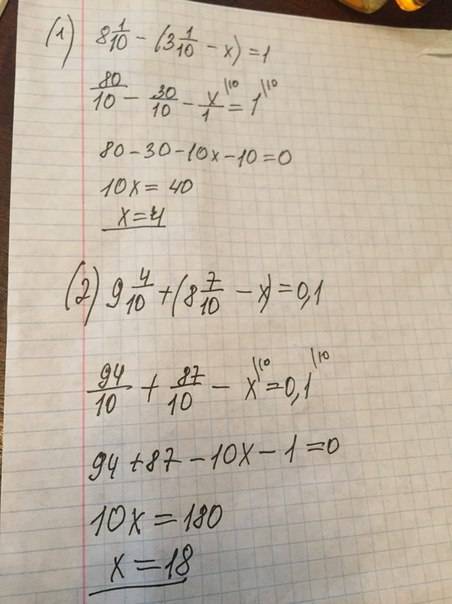 (1) 8 1/10 - (3 1/10 - x) = 1
80/10 - 30/10 - x/1 \10 = 1 \10
80 - 30 - 10x - 10 = 0
10x = 40
x = 4
(2) 9 4/10 + (8 7/10 - x) = 0,1
94/10 + 87/10 - x \10 = 0,1 \10
94 + 87 - 10x - 1 = 0
10x = 180
x = 18